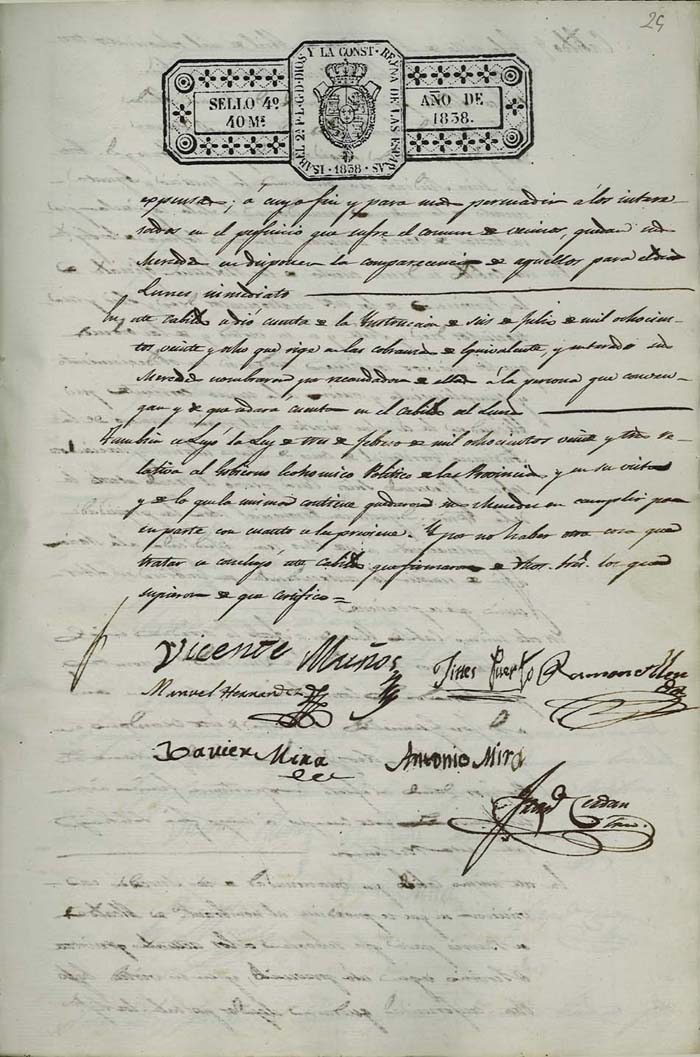 29
SELLO 4º
40 Mˢ
ISABEL 2ª P. L. G. D. DIOS Y LA CONST. REYNA DE LAS ESPAÑAS
1838
AÑO DE
1838.
expensas; a cuyo fin y para mas persuadir á los intere-
sados en el perjuicio que sufre el comun de vecinos, quedan sus
Mercedes en disponer la comparecencia de aquellos para el dia
Lunes inmediato
En este Cabildo se dió cuenta de la Instruccion de seis de Julio de mil ochocien-
tos veinte y ocho que rige en las cobranzas de Equivalente, y enterados sus
Mercedes nombraron por recaudador de ellas á la persona que conven-
gan y de que se dara cuenta en el Cabildo del Lunes
Tambien se leyó la Ley de tres de febrero de mil ochocientos veinte y tres re-
lativa al Gobierno Economico Politico de las Provincias, y en su vista
y de lo que la misma contiene quedaron sus Mercedes en cumplir por
su parte con cuanto se les previene. Y por no haber otra cosa que
tratar se concluyó este Cabildo que firmaron de dhos. Sres. los que
supieron de que certifico =
Vicente Muños
Gines Puerto
Ramon
Manuel Hernandez
Xavier Mira
Antonio Mira
Cerdan